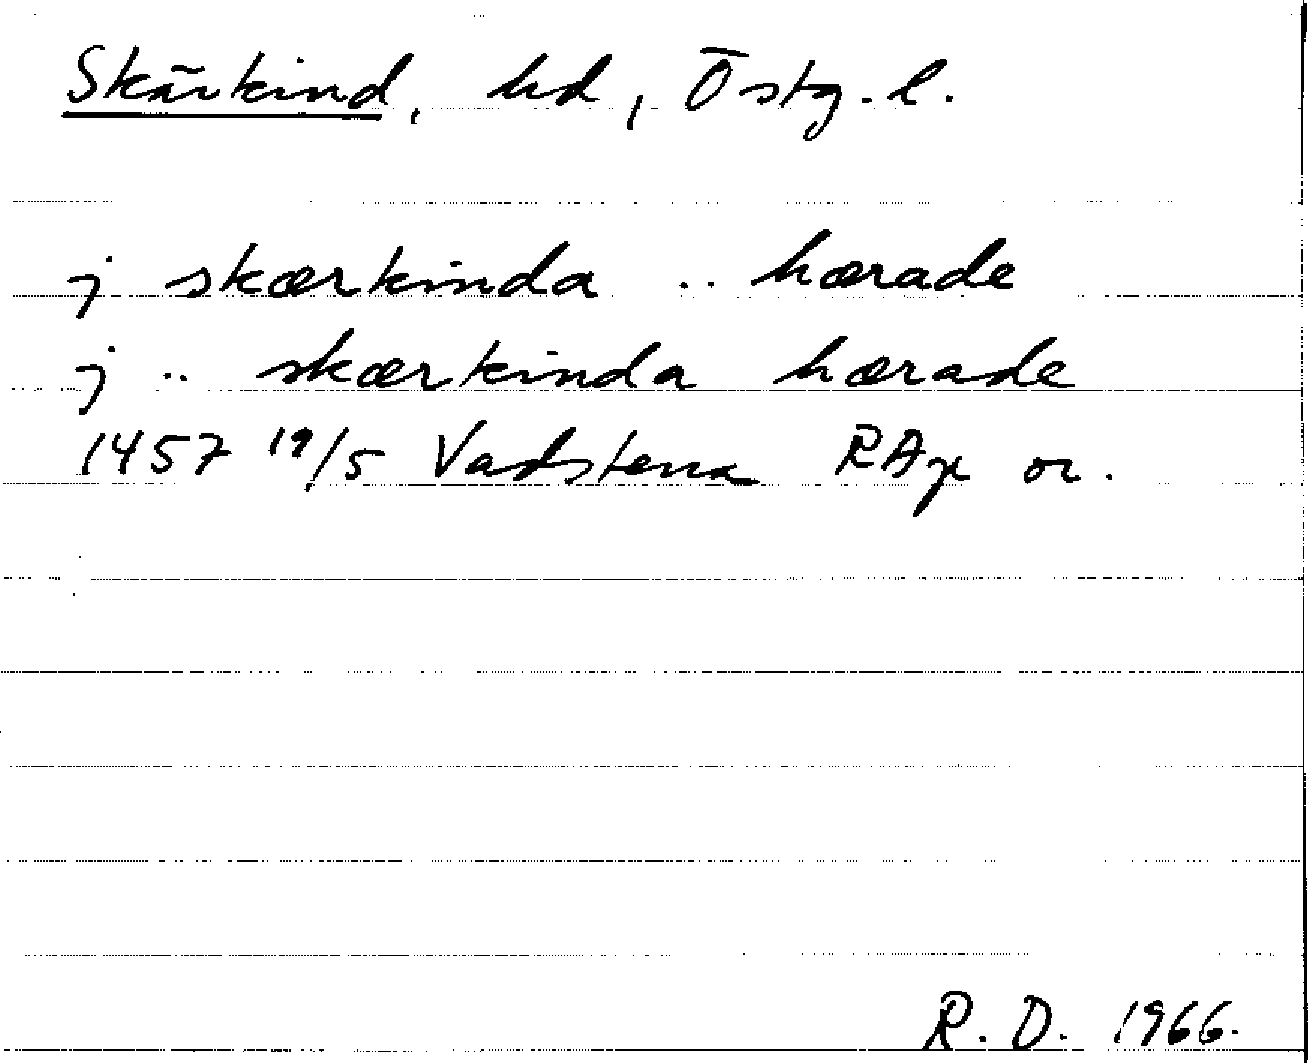 Skärkind, hd, Östg. l.
j skærkinda .. hærade
j .. skærkinda hærade
1457 19/5 Vadstena RAp or.
R. D. 1966.